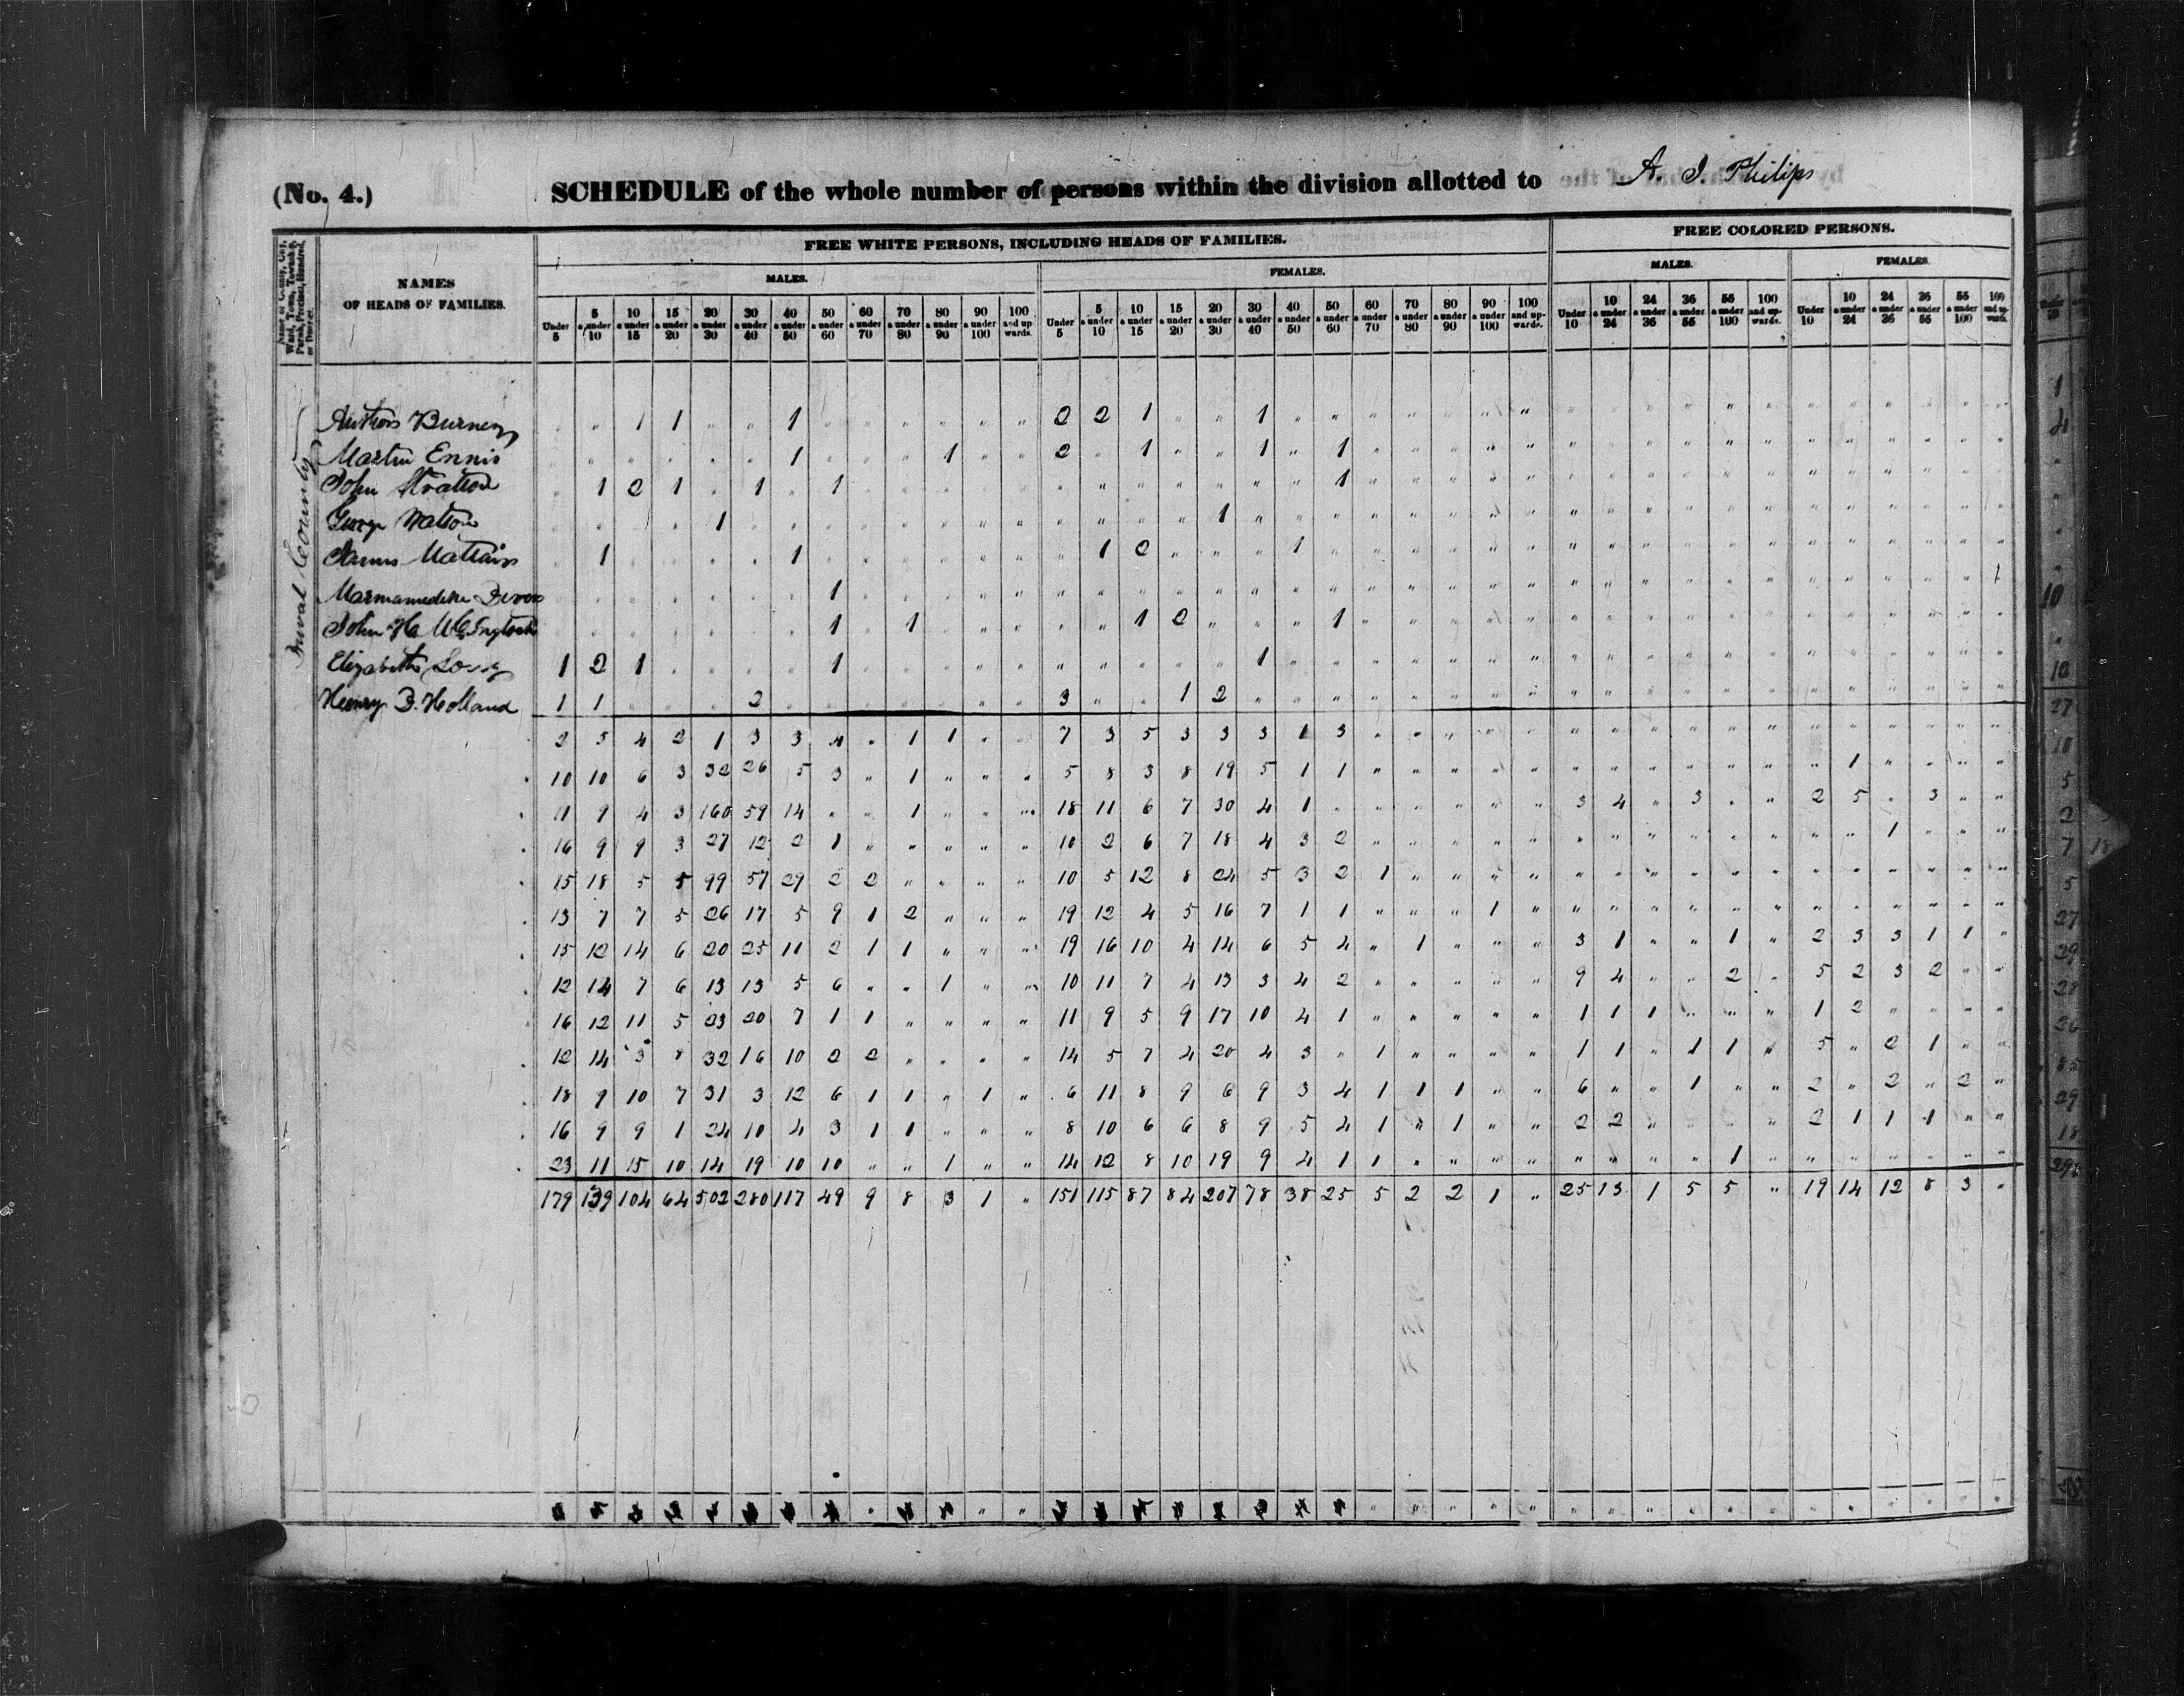 (No. 4.) SCHEDULE of the whole number of persons within the division allotted to A. J. Philips
Name of County, City, Ward, Town, Township, Parish, Precinct, Hundred, or District.
NAMES OF HEADS OF FAMILIES.
FREE WHITE PERSONS, INCLUDING HEADS OF FAMILIES.
FREE COLORED PERSONS.
MALES. FEMALES. MALES. FEMALES.
Under 5 5 & under 10 10 & under 15 15 & under 20 20 & under 30 30 & under 40 40 & under 50 50 & under 60 60 & under 70 70 & under 80 80 & under 90 90 & under 100 100 and upwards. Under 5 5 & under 10 10 & under 15 15 & under 20 20 & under 30 30 & under 40 40 & under 50 50 & under 60 60 & under 70 70 & under 80 80 & under 90 90 & under 100 100 and upwards. Under 10 10 & under 24 24 & under 36 36 & under 55 55 & under 100 100 and upwards. Under 10 10 & under 24 24 & under 36 36 & under 55 55 & under 100 100 and upwards.
Duval County
Burney " " 1 1 " " 1 " " " " " " 2 2 1 " " 1 " " " " " " "
Martin Ennis " " " " " " 1 " " " 1 " " 2 " 1 " " 1 " 1 " " " " "
John Stratton " 1 2 1 " 1 " 1 " " " " " " " " " " " " 1 " " " " "
George " " " " 1 " " " " " " " " " " " " 1 " " " " " " " "
James Mattair " 1 " " " " 1 " " " " " " " 1 2 " " " 1 " " " " " "
" " " " " " " 1 " " " " " " " " " " " " " " " " " "
John H. " " " " " " " 1 " 1 " " " " " 1 2 " " " 1 " " " " "
Elizabeth Long 1 2 1 " " " " 1 " " " " " " " " " " 1 " " " " " " "
Henry D. Holland 1 1 " " " 2 " " " " " " " 3 " " 1 2 " " " " " " " "
2 5 4 2 1 3 3 4 " 1 1 " " 7 3 5 3 3 3 1 3 " " " " " " " " " " " " " " " " "
10 10 6 3 32 26 5 3 " 1 " " " 5 8 3 8 19 5 1 1 " " " " " " " " " " " " 1 " " " "
11 9 4 3 160 59 14 " " 1 " " " 18 11 6 7 30 4 1 " " " " " " 3 4 " 3 " " 2 5 " 3 " "
16 9 9 3 27 12 2 1 " " " " " 10 2 6 7 18 4 3 2 " " " " " " " " " " " " " 1 " " "
15 18 5 5 99 57 29 2 2 " " " " 10 5 12 8 24 5 3 2 1 " " " " " " " " " " " " " " " "
13 7 7 5 26 17 5 9 1 2 " " " 19 12 4 5 16 7 1 1 " " " 1 " " " " " " " " " " " " "
15 12 14 6 20 25 11 2 1 1 " " " 19 16 10 4 14 6 5 4 " 1 " " " 3 1 " " 1 " 2 3 3 1 1 "
12 14 7 6 13 13 5 6 " " 1 " " 10 11 7 4 13 3 4 2 " " " " " 9 4 " " 2 " 5 2 3 2 " "
16 12 11 5 23 20 7 1 1 " " " " 11 9 5 9 17 10 4 1 " " " " " 1 1 1 " " " 1 2 " " " "
12 14 3 8 32 16 10 2 2 " " " " 14 5 7 4 20 4 3 " 1 " " " " 1 1 " 1 1 " 5 " 2 1 " "
18 9 10 7 31 3 12 6 1 1 " 1 " 6 11 8 9 6 9 3 4 1 1 1 " " 6 " " 1 " " 2 " 2 " 2 "
16 9 9 1 24 10 4 3 1 1 " " " 8 10 6 6 8 9 5 4 1 " 1 " " 2 2 " " " " 2 1 1 1 " "
23 11 15 10 14 19 10 10 " " 1 " " 14 12 8 10 19 9 4 1 1 " " " " " " " " 1 " " " " " " "
179 139 104 64 502 280 117 49 9 8 3 1 " 151 115 87 84 207 78 38 25 5 2 2 1 " 25 13 1 5 5 " 19 14 12 8 3 "